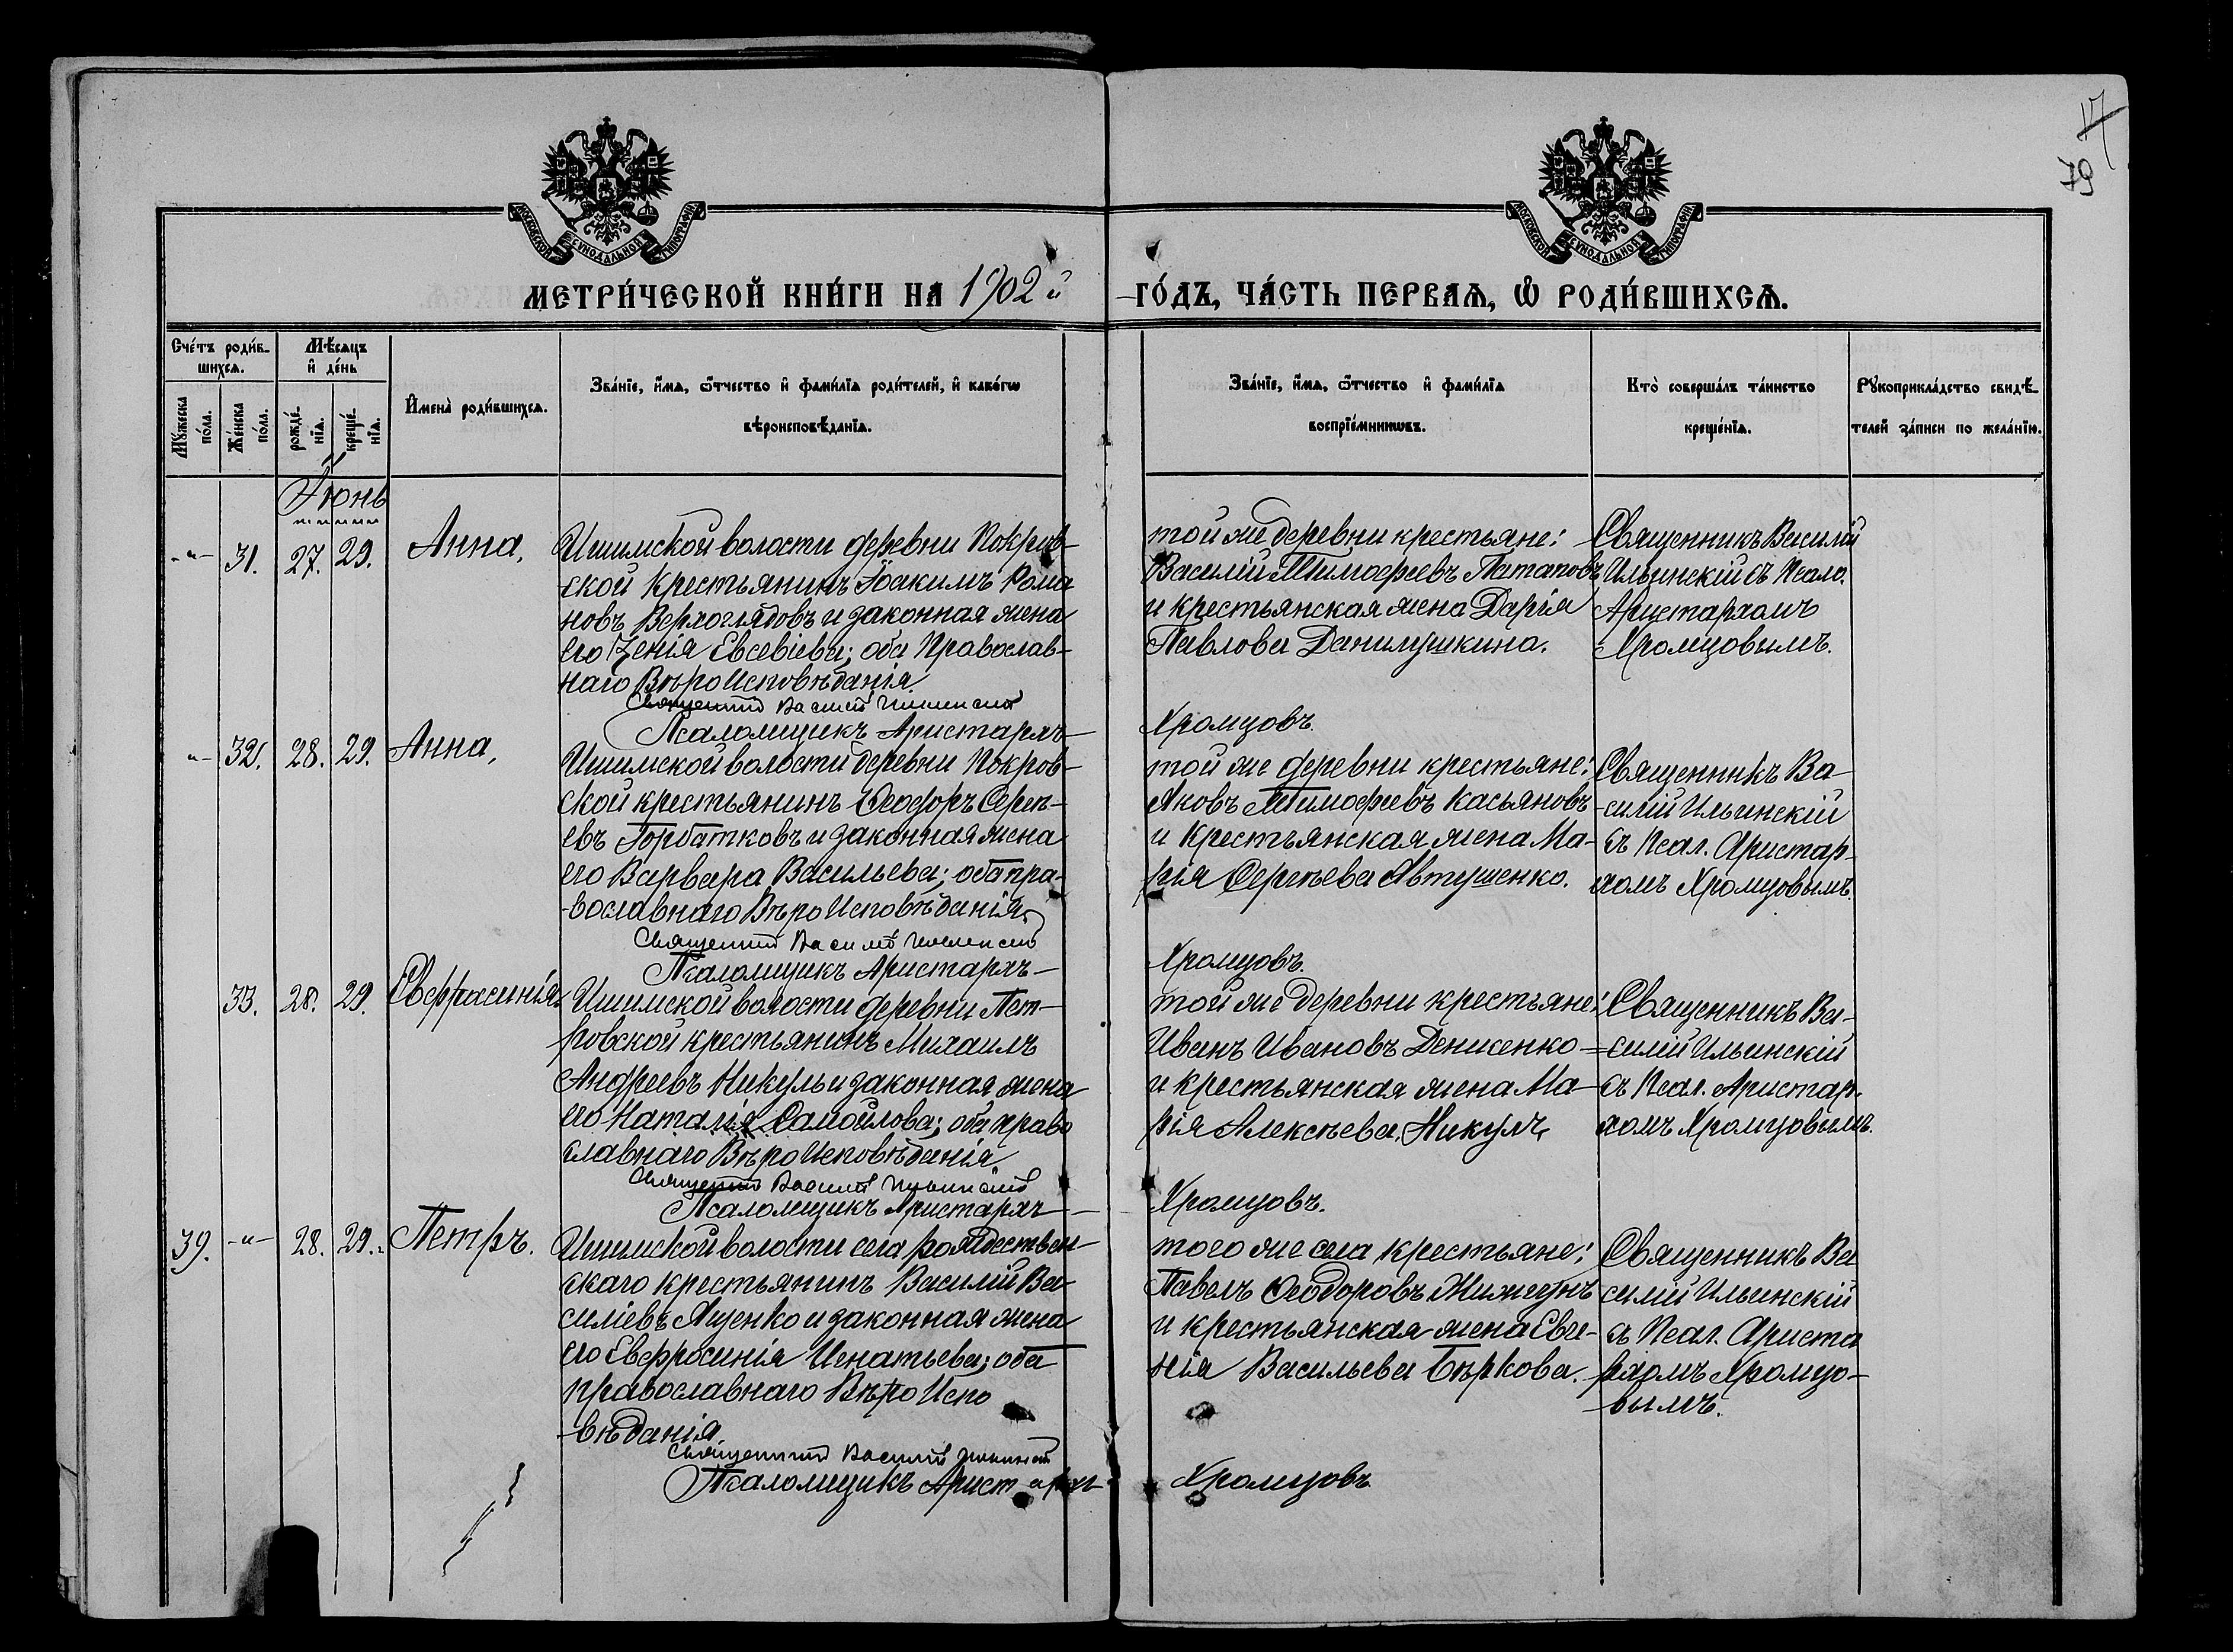 17
79
МОСКОВСКОЙ СѴНОДАЛЬНОЙ ТИПОГРАФІИ
МОСКОВСКОЙ СѴНОДАЛЬНОЙ ТИПОГРАФІИ
МЕТРИ́ЧЕСКОЙ КНИ́ГИ НА 1902 й
ГО́ДЪ, ЧА́СТЬ ПЕРВАѦ, Ѡ҆ РОДИ́ВШИХСѦ.
Сче́тъ роди́в-
шихсѧ.
Мꙋ́жеска по́ла.
Же́нска по́ла.
Мѣ́сѧцъ
и҆ де́нь
рожде́-
нїѧ.
креще́-
нїѧ.
И҆мена̀ роди́вшихсѧ.
Зва́нїе, и҆́мѧ, ѻ҆́тчество и҆ фами́лїѧ роди́телей, и҆ како́гѡ
вѣроисповѣ́данїѧ.
Зва́нїе, и҆́мѧ, ѻ҆́тчество и҆ фами́лїѧ
воспрїе́мникѡвъ.
Кто̀ соверша́лъ та́инство
креще́нїѧ.
Рꙋкоприкла́дство свидѣ́-
телей за́писи по жела́нїю.
Іюнь
-"- 31. 27. 29. Анна,
Ишимской волости деревни Покров-
ской крестьянинъ Іоакимъ Рома
новъ Верхоглядовъ и законная жена
его Ѯенія Евсевіева; оба Православ-
наго ВѣроИсповѣданія.
Священник Василій Ильинский
Псаломщикъ Аристархъ
той же деревни крестьяне:
Василій Тимофеевъ Патаповъ
и крестьянская жена Дарія
Павлова Данилушкина.
Хромцовъ.
Священникъ Василій
Ильинскій съ Псало.
Аристархомъ
Хромцовымъ.
"- 32. 28. 29. Анна,
Ишимской волости деревни Покров-
ской крестьянинъ Ѳеодоръ Сергѣ-
евъ Горбатковъ и законная жена
его Варвара Васильева; оба пра-
вославнаго ВѣроИсповѣданія.
Священник Василій Ильинский
Псаломщикъ Аристархъ-
той же деревни крестьяне:
Яковъ Тимофеевъ Касьяновъ
и крестьянская жена Ма-
рія Сергѣева Автушенко.
Хромцовъ.
Священникъ Ва-
силій Ильинскій
съ Псал. Аристар-
хомъ Хромцовымъ.
33. 28. 29. Евфросинія
Ишимской волости деревни Пет-
ровской крестьянинъ Михаилъ
Андреевъ Никуль и законная жена
его Наталія Самойлова; оба право
славнаго ВѣроИсповѣданія.
Священник Василій Ильинский
Псаломщикъ Аристархъ-
той же деревни крестьяне:
Иванъ Ивановъ Денисенко
и крестьянская жена Ма-
рія Алексѣева Никуль.
Хромцовъ.
Священникъ Ва-
силій Ильинскій
съ Псал. Аристар-
хомъ Хромцовымъ.
39. -"- 28. 29. Петръ.
Ишимской волости села Рождествен-
скаго крестьянинъ Василій Ва
силіевъ Яценко и законная жена
его Евфросинія Игнатьева; оба
православнаго ВѣроИспо
-вѣданія.
Священник Василій Ильинский
Псаломщикъ Аристархъ
того же села крестьяне:
Павелъ Ѳеодоровъ
и крестьянская жена Евге-
нія Васильева Бѣркова.
Хромцовъ
Священникъ Ва
силій Ильинскій
съ Псал. Ариста
рхомъ Хромцо-
вымъ.